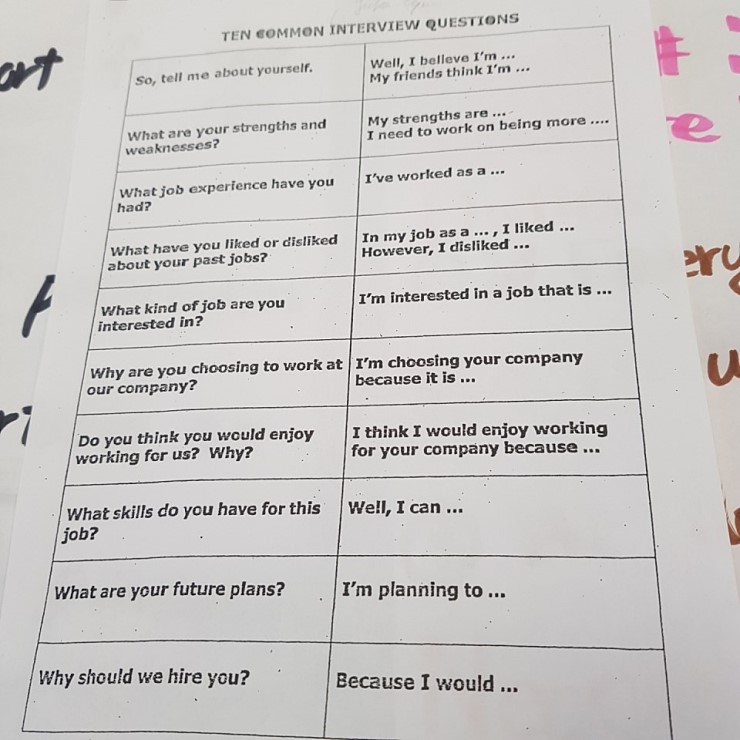 TEN COMMON INTERVIEW QUESTIONS
So, tell me about yourself.
Well, I believe I'm ...
My friends think I'm ...
What are your strengths and
weaknesses?
My strengths are ...
I need to work on being more ....
What job experience have you
had?
I've worked as a ...
What have you liked or disliked
about your past jobs?
In my job as a ... , I liked ...
However, I disliked ...
What kind of job are you
interested in?
I'm interested in a job that is ...
Why are you choosing to work at
our company?
I'm choosing your company
because it is ...
Do you think you would enjoy
working for us? Why?
I think I would enjoy working
for your company because ...
What skills do you have for this
job?
Well, I can ...
What are your future plans?
I'm planning to ...
Why should we hire you?
Because I would ...